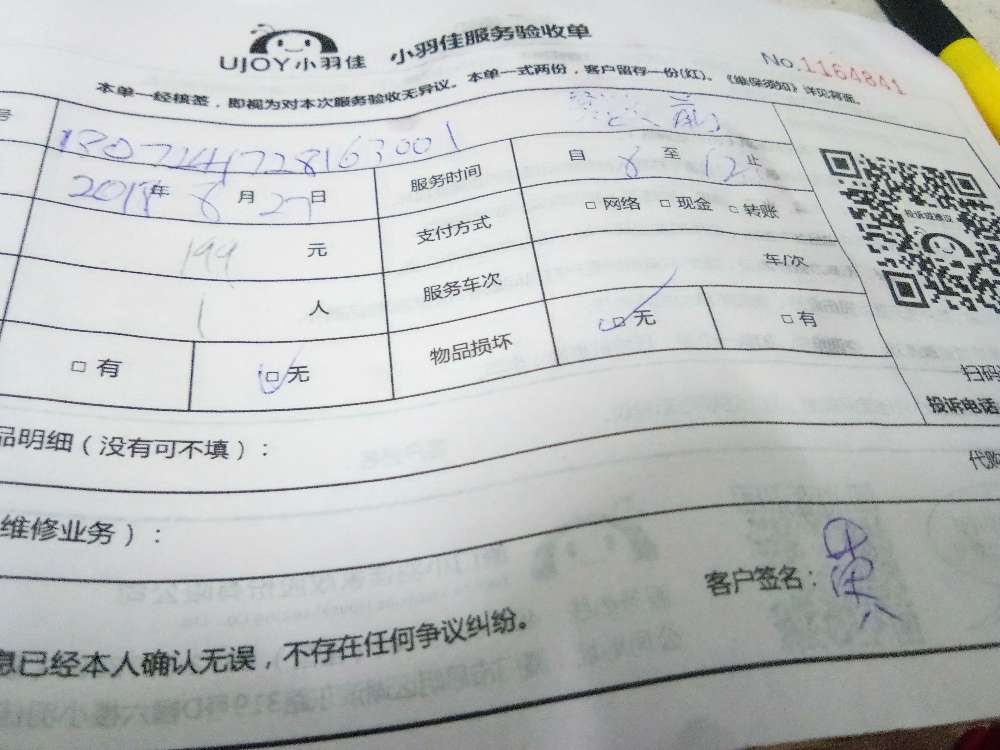 UJOY小羽佳 小羽佳服务验收单
No.1164841
本单一经核签，即视为对本次服务验收无异议。本单一式两份，客户留存一份(红)。《维保须知》详见背面。
号
年 8 月 27 日 服务时间 自 8 至 12 止
199 元 支付方式 □ 网络 □ 现金 □ 转账
投诉或建议
1 人 服务车次 车/次
□ 有 □ 无 物品损坏 □ 无 □ 有
扫码
投诉电话
品明细（没有可不填）：
代购
维修业务）：
客户签名：
息已经本人确认无误，不存在任何争议纠纷。